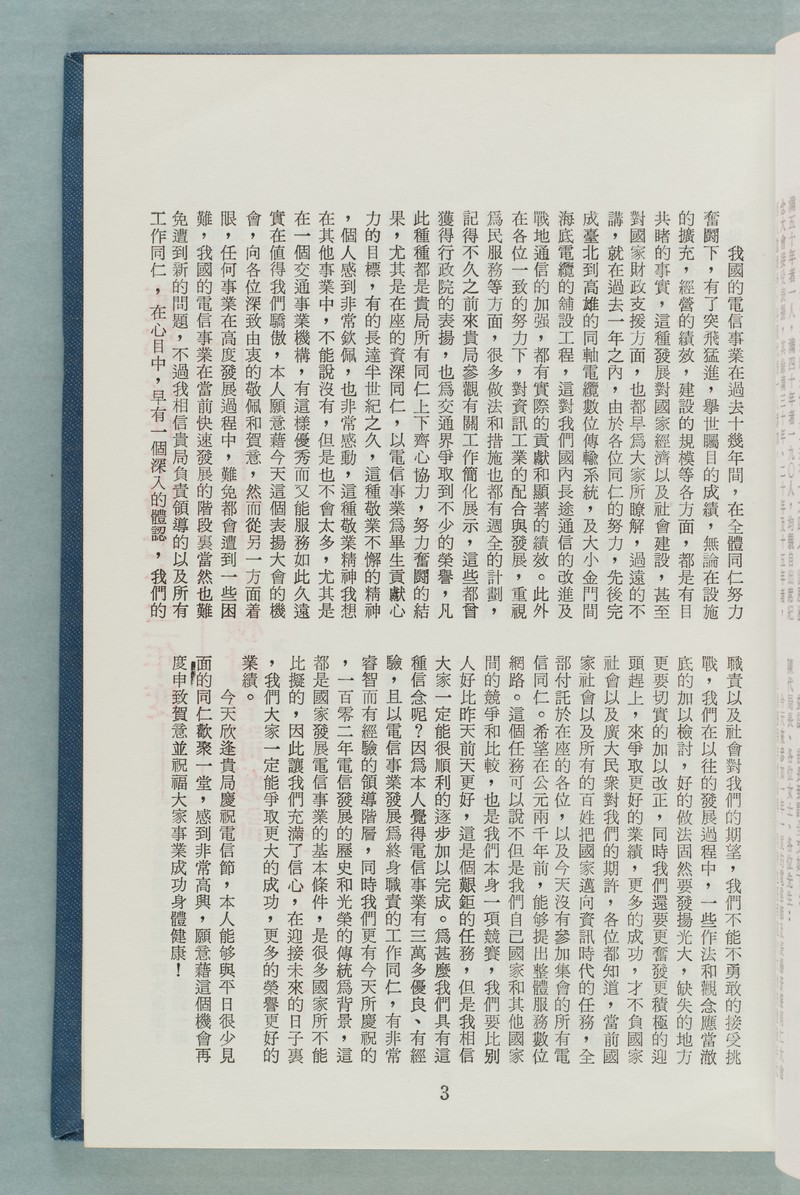 我國的電信事業在過去十幾年間，在全體同仁努力
奮鬪下，有了突飛猛進，舉世矚目的成績，無論在設施
的擴充，經營的績效，建設的規模等各方面，都是有目
共睹的事實，這種發展對國家經濟以及社會建設，甚至
對國家財政支援方面，也都早爲大家所瞭解，過遠的不
講，就在過去一年之內，由於各位同仁的努力，先後完
成臺北到高雄的同軸電纜數位傳輸系統，及大小金門間
海底電纜的舖設工程，這對我們國內長途通信的改進及
戰地通信的加強，都有實際的貢獻和顯著的績效。此外
在各位一致的努力下，對資訊工業的配合與發展，重視
爲民服務等方面，很多做法和措施也都有週全的計劃，
記得不久之前來貴局參觀有關工作簡化展示，這些都曾
獲得行政院的表揚，也爲交通界爭取到不少的榮譽，凡
此種種都是貴局所有同仁上下齊心協力，努力奮鬪的結
果，尤其是在座的資深同仁，以電信事業爲畢生貢獻心
力的目標，有的長達半世紀之久，這種敬業不懈的精神
，個人感到非常欽佩，也非常感動，這種敬業精神我想
在其他事業中，不能說沒有，但是也不會太多，尤其是
在一個交通事業機構，有這樣優秀而又能服務如此久遠
實在值得我們驕傲，本人願意藉今天這個表揚大會的機
會，向各位深致由衷的敬佩和賀意，然而從另一方面着
眼，任何事業在高度發展過程中，難免都會遭到一些困
難，我國的電信事業在當前快速發展的階段裏當然也難
免遭到新的問題，不過我相信貴局負責領導的以及所有
工作同仁，在心目中，早有一個深入的體認，我們的
職責以及社會對我們的期望，我們不能不勇敢的接受挑
戰，我們在以往的發展過程中，一些作法和觀念應當澈
底的加以檢討，好的做法固然要發揚光大，缺失的地方
更要切實的加以改正，同時我們還要更奮發更積極的迎
頭趕上，來爭取更好的業績，更多的成功，才不負國家
社會以及廣大民衆對我們的期許，各位都知道，當前國
家社會以及所有的百姓把國家邁向資訊時代的任務，全
部付託於在座的各位，以及今天沒有參加集會的所有電
信同仁。希望在公元兩千年前，能够提出整體服務數位
網路。這個任務可以說不但是我們自己國家和其他國家
間的競爭和比較，也是我們本身一項競賽，我們要比別
人好比昨天前天更好，這是個艱鉅的任務，但是我相信
大家一定能很順利的逐步加以完成。爲甚麼我們具有這
種信念呢？因爲本人覺得電信事業有三萬多優良、有經
驗，且以電信事業發展爲終身職責的工作同仁，有非常
睿智而有經驗的領導階層，同時我們更有今天所慶祝的
，一百零二年電信發展的歷史和光榮的傳統爲背景，這
都是國家發展電信事業的基本條件，是很多國家所不能
比擬的，因此讓我們充滿了信心，在迎接未來的日子裏
，我們大家一定能爭取更大的成功，更多的榮譽更好的
業績。
今天欣逢貴局慶祝電信節，本人能够與平日很少見
面的同仁歡聚一堂，感到非常高興，願意藉這個機會再
度申致賀意並祝福大家事業成功身體健康！
3